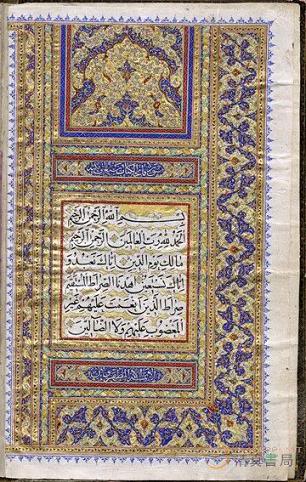 بِسْمِ اللهِ الرَّحْمٰنِ الرَّحِيمِ
اَلْحَمْدُ لِلّٰهِ رَبِّ الْعَالَمِينَ الرَّحْمٰنِ الرَّحِيمِ
مَالِكِ يَوْمِ الدِّينِ اِيَّاكَ نَعْبُدُ وَ
اِيَّاكَ نَسْتَعِينُ اِهْدِنَا الصِّرَاطَ الْمُسْتَقِيمَ
صِرَاطَ الَّذِينَ اَنْعَمْتَ عَلَيْهِمْ غَيْرِ
الْمَغْضُوبِ عَلَيْهِمْ وَلَا الضَّالِّينَ
書局